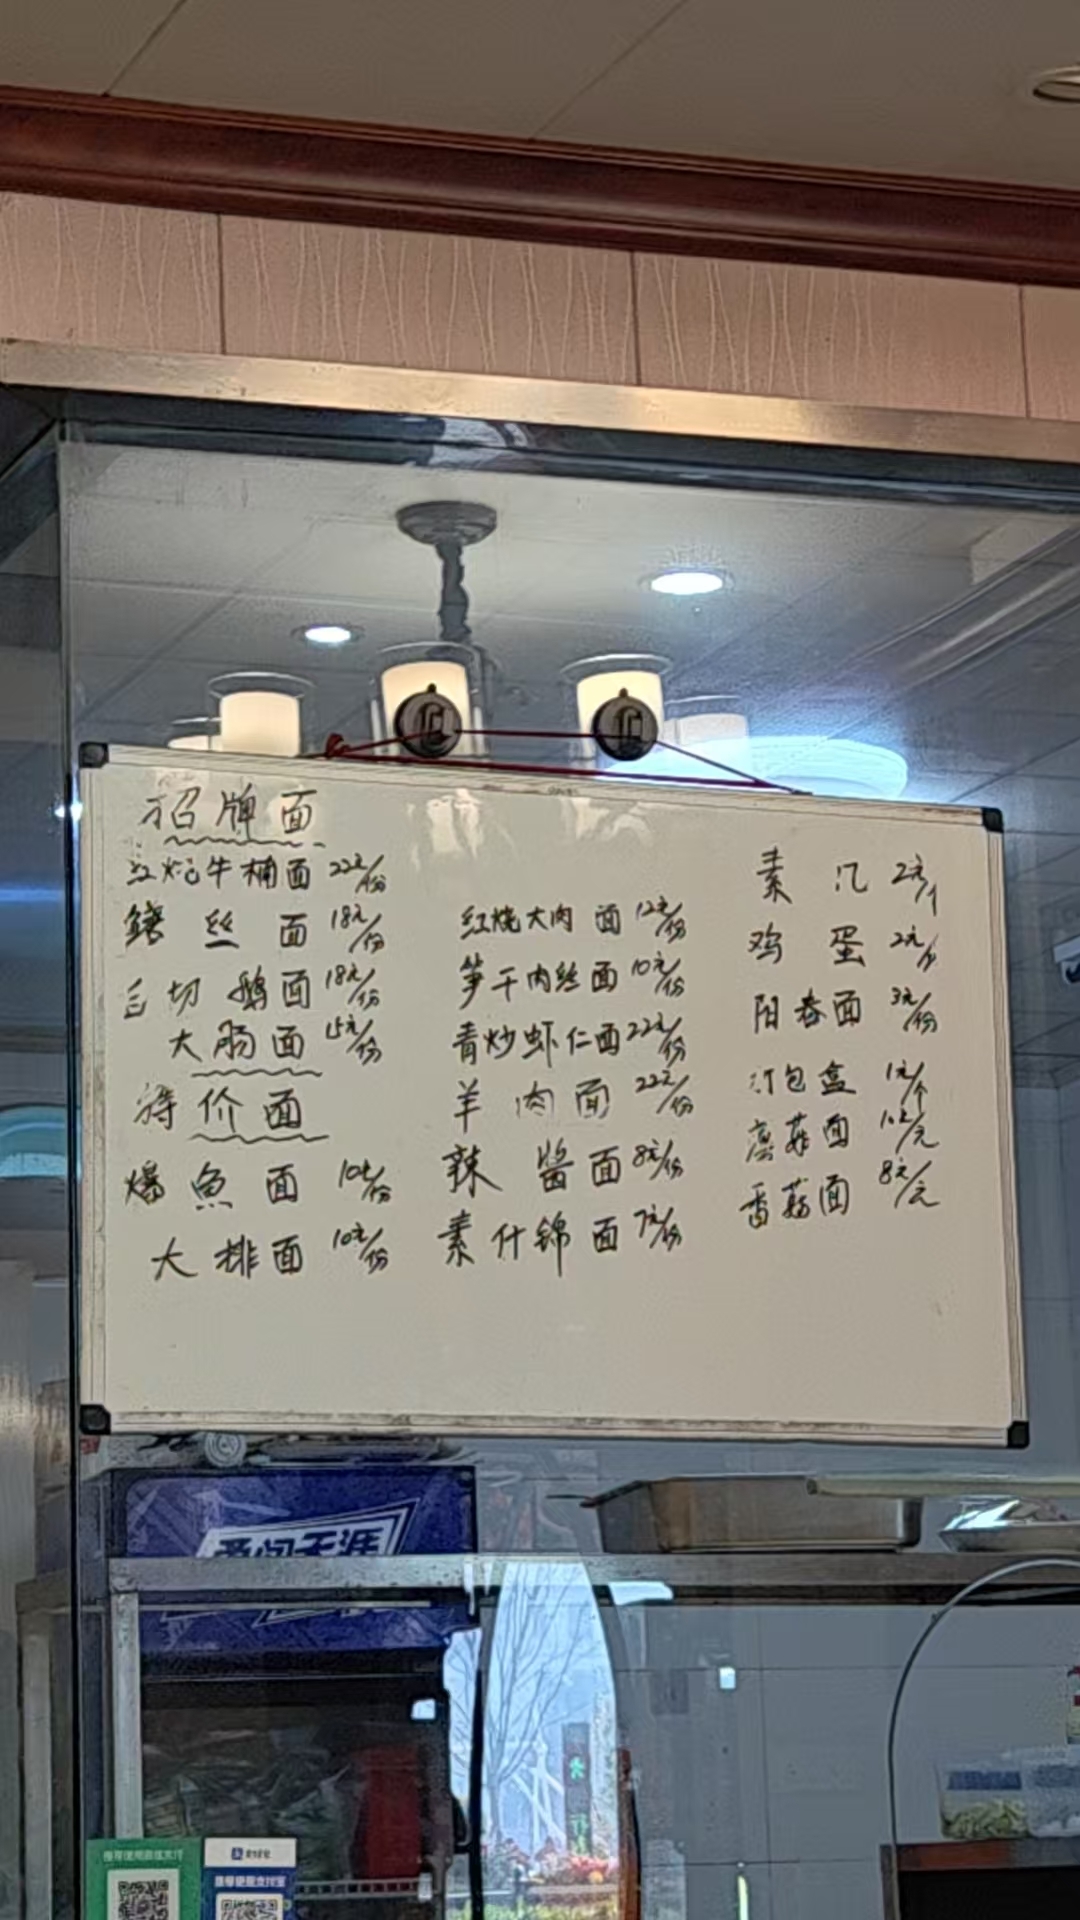 招牌面
红烧牛楠面 22元/份
鳝丝面 18元/份
白切鹅面 18元/份
大肠面 15元/份
特价面
爆魚面 10元/份
大排面 10元/份
红烧大肉面 12元/份
笋干肉丝面 10元/份
青炒虾仁面 22元/份
羊肉面 22元/份
辣醬面 8元/份
素什锦面 7元/份
素 2元/个
鸡蛋 2元/个
阳春面 3元/份
打包盒 1元/个
菇面 10元/元
香菇面 8元/元
爱闯天涯